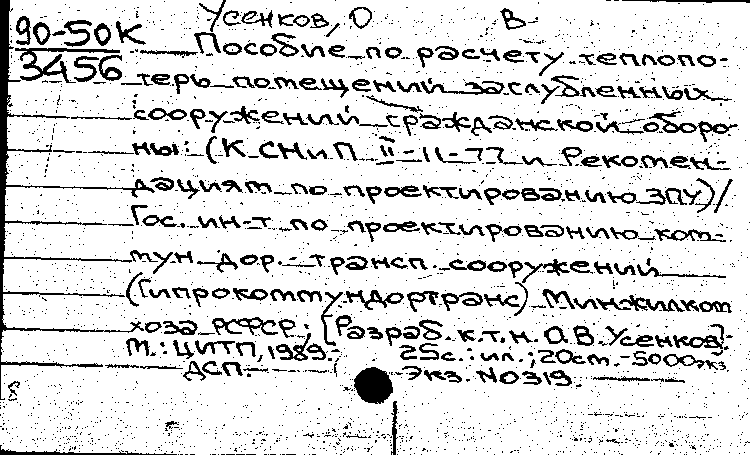 Усенков, О В
90-50К
3456
Пособие по расчету теплопо-
терь помещений заглубленных
сооружений гражданской оборо-
ны: (К СНиП II-11-77 и Рекомен-
дациям по проектированию ЗПУ)/
Гос. ин-т по проектированию ком-
мун. дор.-трансп. сооружений
(Гипрокоммундортранс) Минжилком
хоза РСФСР; [Разраб. к.т.н. О.В. Усенков].-
М.: ЦИТП, 1989.- 25с.: ил.; 20см.-5000экз
ДСП. Экз. №0319.